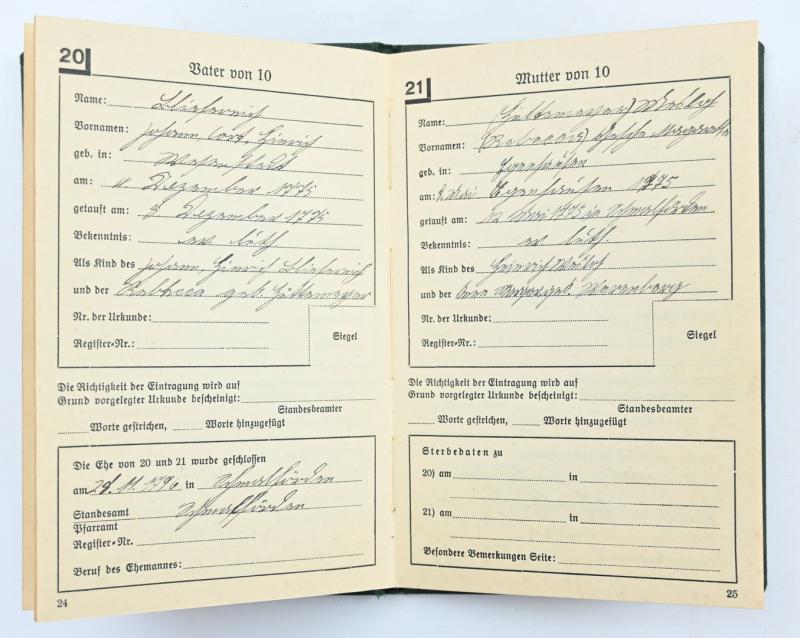 20
Vater von 10
Name:
Vornamen: Johann, Cord, Hinrich
geb. in:
am: Dezember 1775
getauft am: Dezember 1775
Bekenntnis: ev luth
Als Kind des Johann, Hinrich
und der Rebecca geb. Hüttemeyer
Nr. der Urkunde:
Register-Nr.:
Siegel
Die Richtigkeit der Eintragung wird auf
Grund vorgelegter Urkunde bescheinigt:
Standesbeamter
Worte gestrichen, Worte hinzugefügt
Die Ehe von 20 und 21 wurde geschlossen
am 11. 1796 in Schmalförden
Standesamt
Pfarramt Schmalförden
Register-Nr.
Beruf des Ehemannes:
24
21
Mutter von 10
Name: (Hüttemeyer)
Vornamen: (Rebecca) Gesche Margarethe
geb. in:
am: Mai 1775
getauft am: 12 Mai 1775 in Schmalförden
Bekenntnis: ev luth.
Als Kind des Heinrich
und der geb.
Nr. der Urkunde:
Register-Nr.:
Siegel
Die Richtigkeit der Eintragung wird auf
Grund vorgelegter Urkunde bescheinigt:
Standesbeamter
Worte gestrichen, Worte hinzugefügt
Sterbedaten zu
20) am in
21) am in
Besondere Bemerkungen Seite:
25